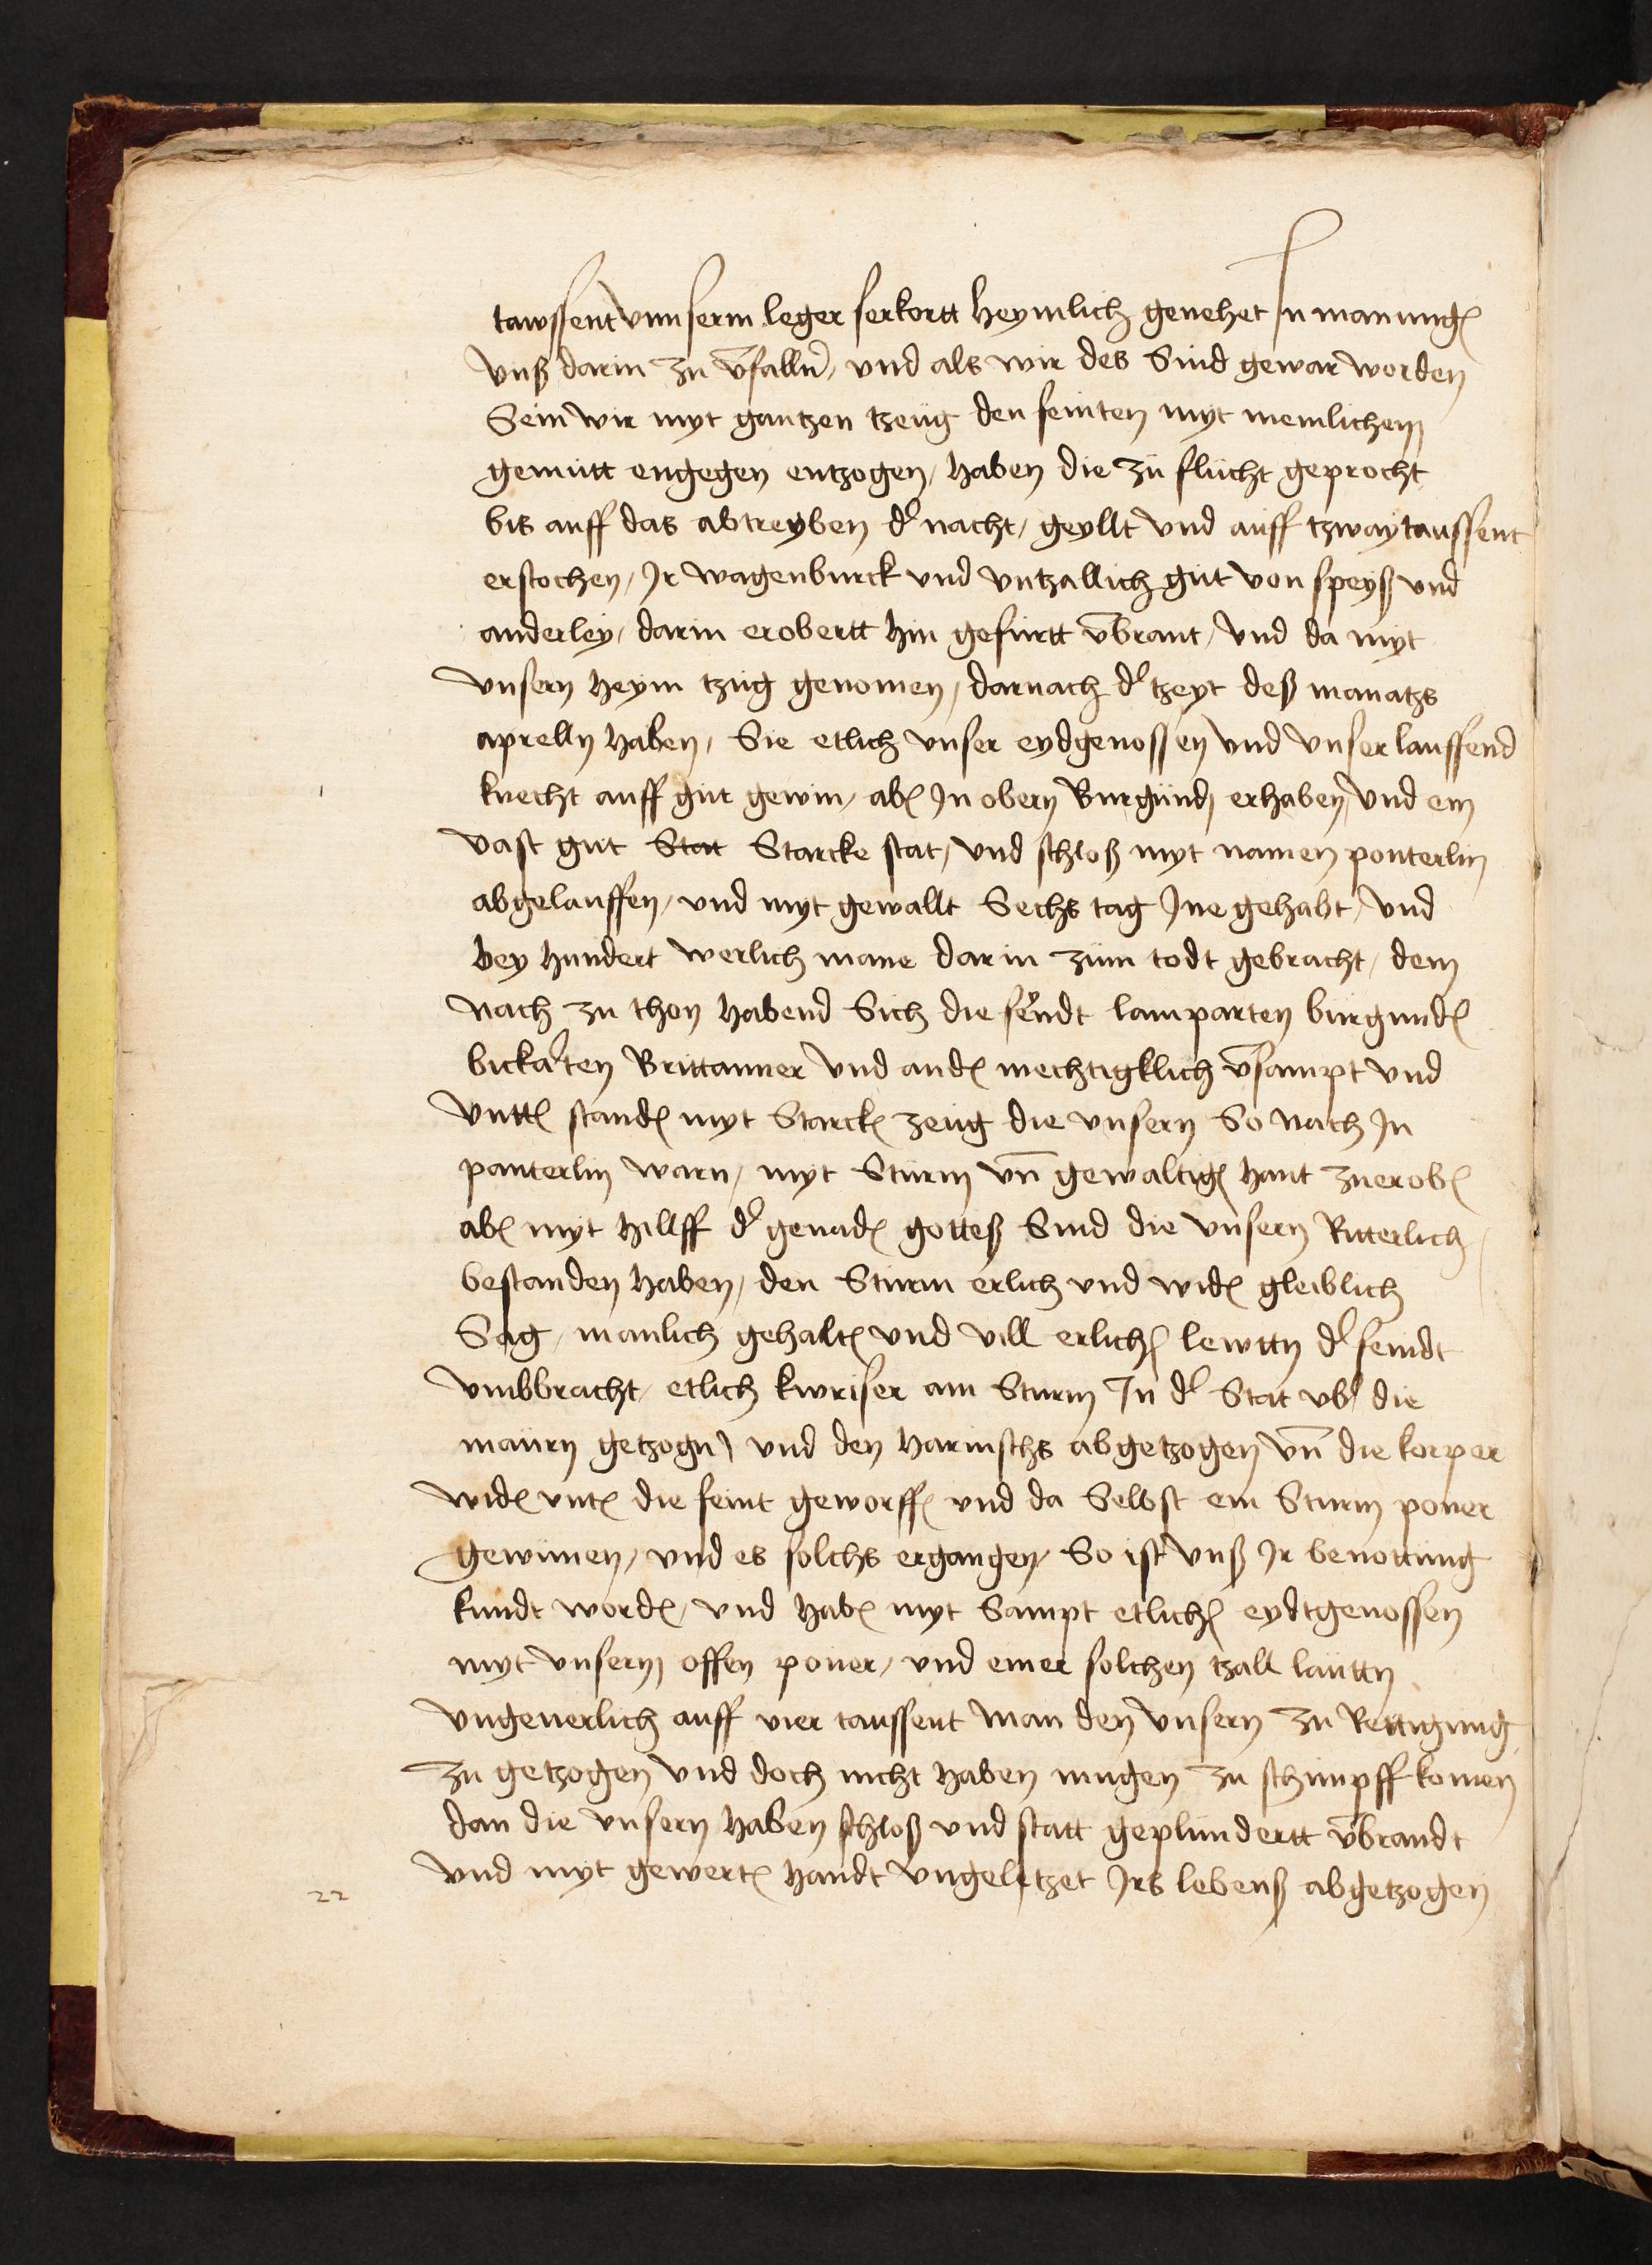 tawssent vnnserm leger serkortt heymlich genehet In manung
vnß darin zu v̄falln, vnd als wir des Sind gewar worden
Sein wir myt gantzen tzeug den feinten myt menlichem
gemütt engegen entzogen, haben die zu flücht geprocht
bis auff das abtreyben dˀ nacht, geyllt vnd auff tzwaytaussent
erstochen, Ir wagenburck vnd vntzallich güt von speyß vnd
anderley, darin erobertt hin gefürtt v̄brant, vnd da myt
vnsern heym tzug genomen, darnach dˀ tzeyt deß manatzs
aprelln haben, Sie etlich vnser eydgenossen vnd vnser lauffend
knecht auff güt gewin, abˀ In obern Burgünd erhaben, vnd ein
vast güt Stat Starcke stat, vnd schloß myt namen ponterlin
abgelauffen, vnd myt gewallt Sechs tag Jne gehabt, vnd
bey hundert werlich mane darin züm todt gebracht, dem
nach zu thon habend Sich die feindt lamparten bürgundˀ
bickarten Brittanner vnd andˀ mechtigklich v̄sampt vnd
vnttˀ standˀ myt Starckˀ zeug die vnsern So nach In
panterlin warn, myt Sturm vn̄ gewaltigˀ hant zuerobˀ
abˀ myt hillff dˀ genadˀ gotteß Sind die vnsern Ritterlich
bestanden haben, den Sturm erlich vnd widˀ gleiblich
Sag, manlich gehaltˀ vnd vill erlichˀ lewttn dˀ feindt
vmbbracht, etlich kwriser am Sturm In dˀ Stat vbˀ die
maürn getzogn, vnd den harnischs abgetzogen vn̄ die korper
widˀ vntˀ die feint geworffˀ vnd da Selbst ein Sturm poner
gewinnen, vnd es solchs ergangen, So ist vnß Ir benottung
kundt wordˀ, vnd habˀ myt Sampt etlichˀ eydtgenossen
myt vnsern offen poner, vnd einer solchen tzall lauttn
vngeuerlich auff vier taussent man den vnsern zu Rettigung
zu getzogen vnd doch nicht haben mugen zu schimpff komen
dan die vnsern haben schloß vnd statt geplündertt v̄brandt
vnd myt gewertˀ handt vngeletzet Irs lebenß abgetzogen
22